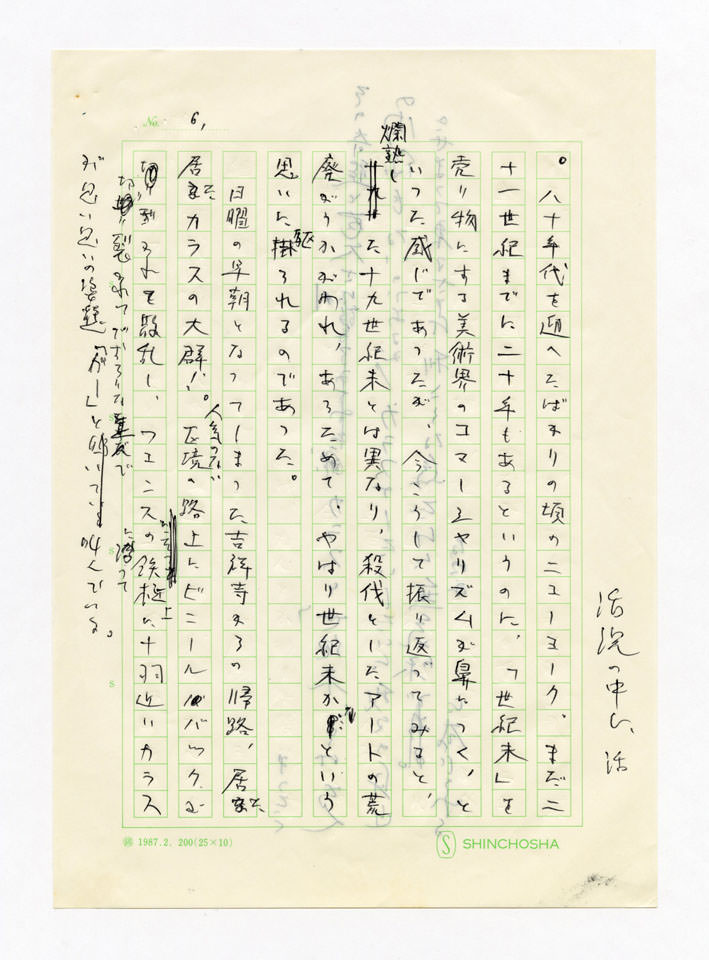 No. 6,
活況の中に、活
。八十年代を迎へたばかりの頃のニューヨーク。まだ二
十一世紀までに二十年もあるというのに、「世紀末」を
売り物にする美術界のコマーシャリズムが鼻につく、と
いった感じであったが、今こうして振り返ってみると、
爛熟し
た十九世紀末とは異なり、殺伐としたアートの荒
廃がうかがわれ、あらためて、やはり世紀末か、という
思いに駆られるのであった。
日曜の早朝となってしまった吉祥寺からの帰路、居た、
居た カラスの大群!。人気のない区境の路上にビニールバックが
散乱し、フェンスの鉄柱上に十羽近いカラス
が思い思いの姿態で 叫んでいる。
㊞ 1987.2. 200(25×10)
S SHINCHOSHA